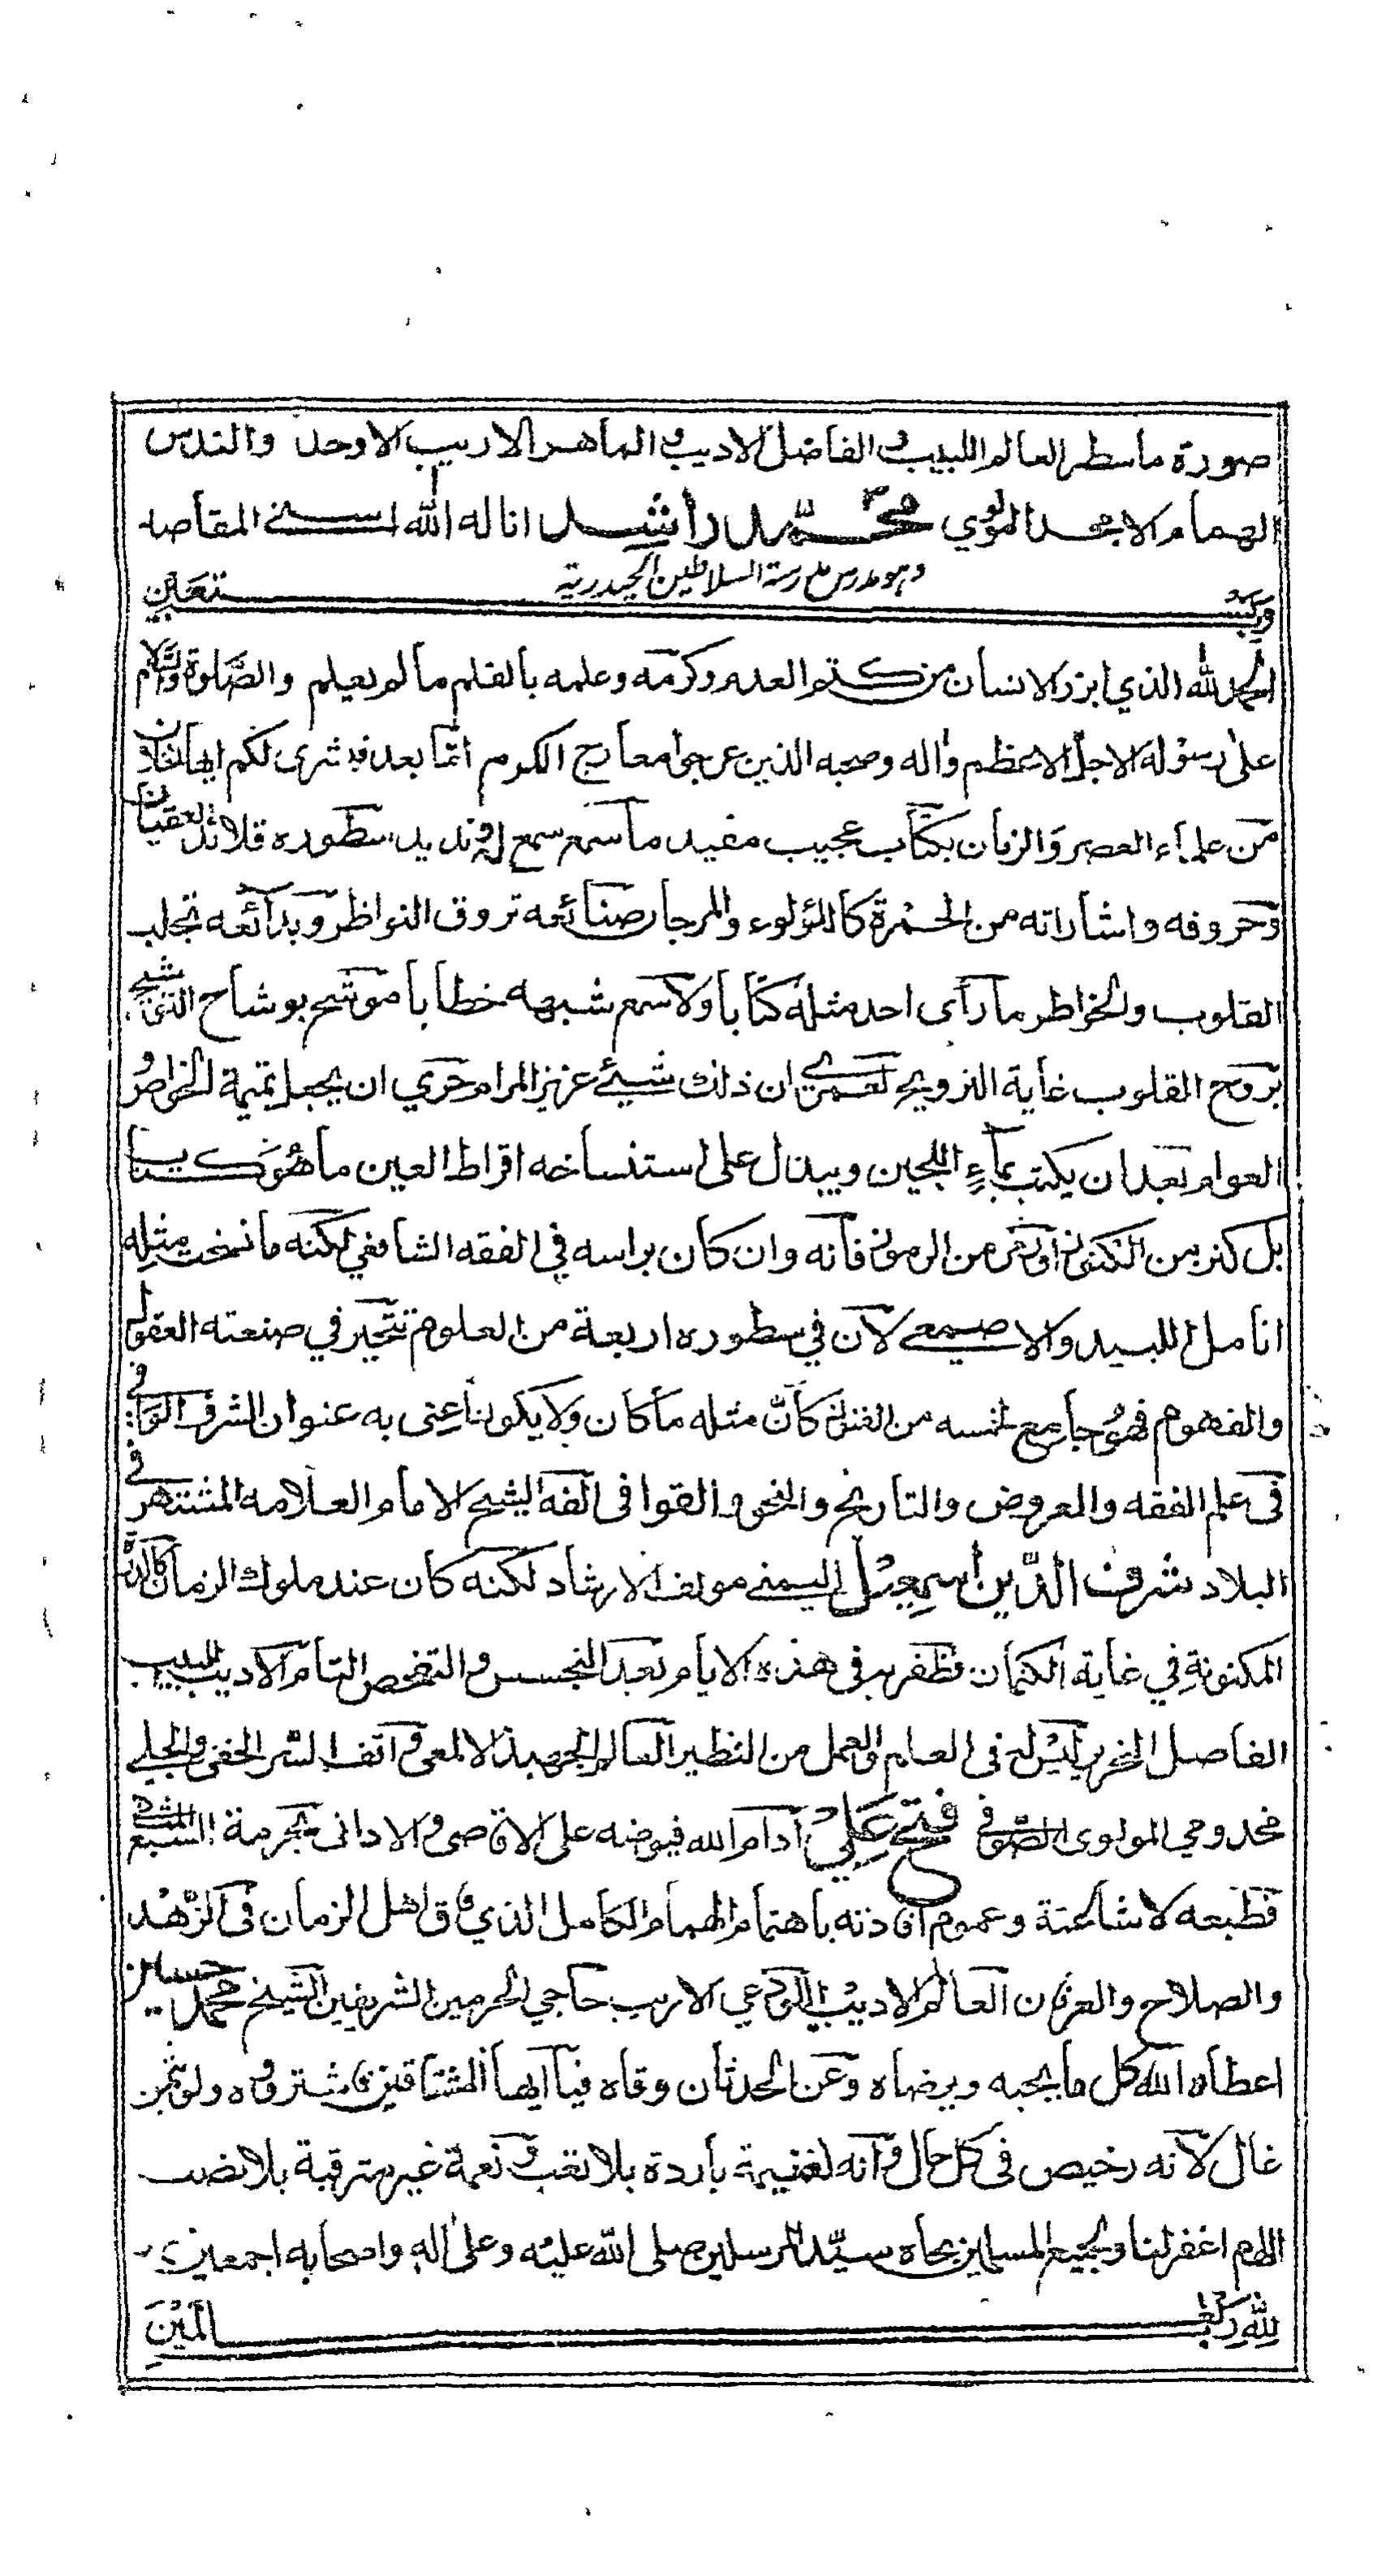 صورة ما سطر العالم اللبيب و الفاضل الاديب و الماهر الاريب الاوحد والندس
الهمام الامجد المولوي محمّد راشد اناله الله اسنى المقاصد
وهو مدرس مدرسة السلاطين الحيدرية
وبه نستعين
الحمد لله الذي ابرز الانسان من كتم العدم وكرمه وعلمه بالقلم ما لم يعلم والصّلوة والسّلام
على رسوله الاجل الاعظم واله وصحبه الذين عرجوا معارج الكرم امّا بعد فبشرى لكم ايها الخلان
من علماء العصر والزمان بكتاب عجيب مفيد ما سمع سمع له نديد سطوره قلائد العقيان
وحروفه واشاراته من الحمرة كاللؤلوء والمرجان صنائعه تروق النواظر وبدائعه تجلب
القلوب والخواطر ما رأى احد مثله كتابا ولا سمع شبهه خطابا موشح بوشاح التوشيح
يروح القلوب غاية الترويح لعمري ان ذلك شيئ عزيز المرام حري ان يجعل تميمة الخواص و
العوام بعد ان يكتب بماء اللجين ويبذل على استنساخه اقراط العين ما هو كتاب
بل كنز من الكنوز او رمز من الرموز فانه وان كان براسه في الفقه الشافعي لكنه ما نسخت مثله
انامل اللبيد والاصمعي لان في سطوره اربعة من العلوم تتحير في صنعته العقول
والفهوم فهو جامع لخمسه من الفنون كان مثله ما كان ولا يكون اعنى به عنوان الشرف الوافي
فى علم الفقه والعروض والتاريخ والنحو والقوافى الفه الشيخ الامام العلامه المشتهر فى
البلاد شرف الدّين اسمعيل اليمني مولف الارشاد لكنه كان عند ملوك الزمان كالدرة
المكنونة في غاية الكتمان فظفر به فى هذه الايام بعد التجسس و التفحص التام الاديب اللبيب
الفاصل النحرير ليس له فى العلم والعمل من النظير العالم الجهبذ الالمعي واقف السّر الخفي والجلي
مخدومي المولوى الصّوفي فتح علي ادام الله فيوضه على الاقاصى والادانى بحرمة السبع المثاني
فطبعه لاشاعته وعموم افادته باهتمام الهمام الكامل الذي فاق اهل الزمان فى الزّهد
والصلاح والعرفان العالم الاديب اللوذعي الاريب حاجي الحرمين الشريفين الشيخ محمد حسين
اعطاه الله كل ما يحبه ويرضاه وعن الحدثان وقاه فيا ايها المشتاقين فاشتروه ولو بثمن
غال لانه رخيص فى كل حال وانه لغنيمة باردة بلا تعب و نعمة غير مترقبة بلا نصب
اللهم اغفر لنا ولجميع المسلمين بجاه سيّد المرسلين صلى الله عليه وعلى اله واصحابه اجمعين
لله رب العالمين